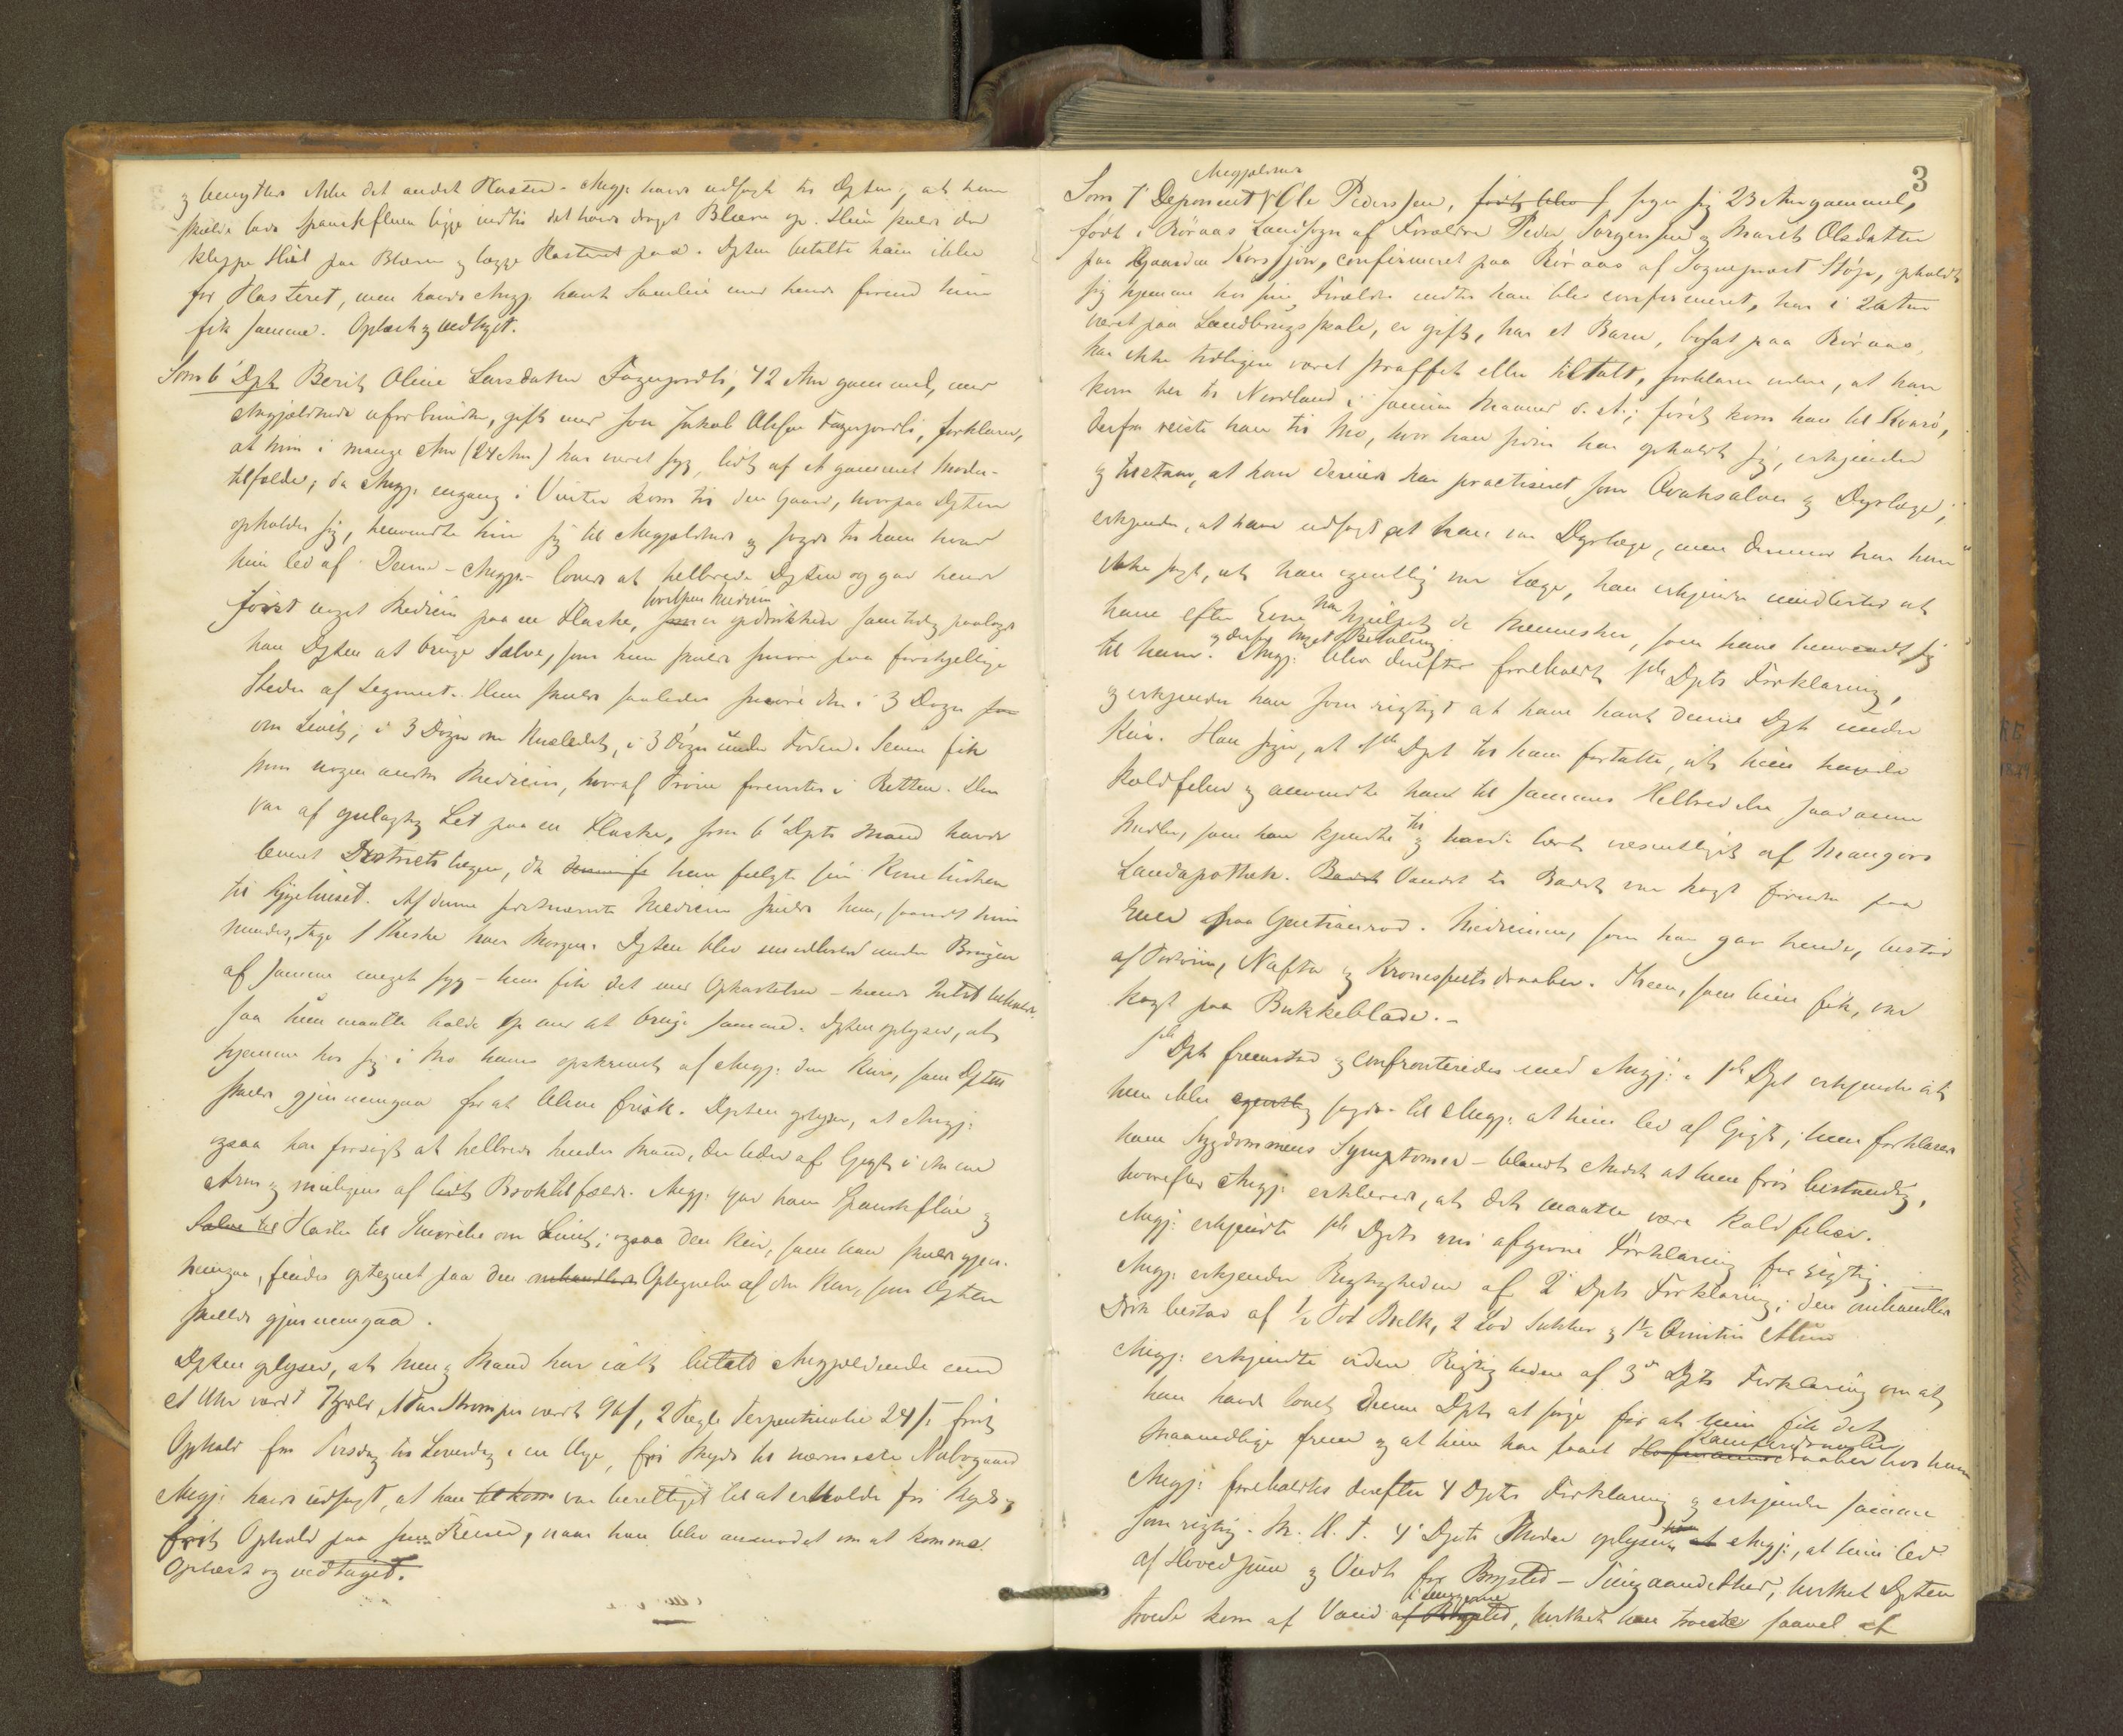 og benyttes ikke det andet Plaster. Angj. havde udsagt til Dpten, at hun
skulde lade Spanskfluen ligge indtil det havde draget Blæren op. Hun skulde da
klippe Hul paa Blæren og lægge Plasteret paa. Dpten betalte ham ikke
for Plasteret, men havde Angj. havt Samleie med hende førend hun
fik samme. Oplæst og vedtaget.
Som 6' Dpt. Berit Oline Larsdatter Fagerjordli, 42 Aar gammel, med
Angjældende uforbunden, gift med Jon Jakob Olsen Fagerjordli, forklarer,
at hun i mange Aar (24 Aar) har været syg, lidt af et gammelt Moder-
tilfælde; da Angj. engang i Vinter kom til den Gaard, hvorpaa Dpten
opholder sig, henvendte hun sig til Angjældende og sagde til ham hvad
hun led af. Denne - Angj. - lovede at helbrede Dpten og gav hende
hvilken Medicin
først noget Medicin paa en Flaske, som er opdrukken samtidig paalagde
han Dpten at bruge Salve, som hun skulde smøre paa forskjellige
Steder af Legemet. Hun skulde saaledes smøre den i 3 Døgn paa
om Livet, i 3 Døgn om Knæledet, i 3 Døgn under Foden. Senere fik
hun nogen anden Medicin, hvoraf Prøve foreviistes i Retten. Den
var af gulagtig Let paa en Flaske, som 6' Dpts Mand havde
leveret Districtslægen, da han fulgte sin Kone
til Sygehuset. Af denne sidstnævnte Medicin skulde hun, saavidt hun
mindes, tage 1 Theske hver Morgen. Dpten blev imidlertid under Brugen
af samme meget syg - hun fik det med Opkastelser - hendes
saa hun maatte holde op med at bruge samme. Dpten oplyser, at
hjemme hos sig i Mo haves opskrevet af Angj. den Kuur, som Dpten
skulde gjennemgaa for at blive frisk. Dpten oplyser, at Angj.
ogsaa har forsøgt at helbrede hendes Mand, der leder af Gigt i den ene
Arm og muligens af lidt Broktilfælde. Angj. gav ham Spanskflue og
Salve til Flaske til Smørelse om Livet; ogsaa den Kuur, som han skulde gjen-
nemgaa, findes optegnet paa den omhandlede Optegnelse af den Kuur, som Dpten
skulde gjennemgaa.
Dpten oplyser, at hun og Mand har ialt betalt Angjældende med
et Uhr værdt 7 Spdlr, 1 Par Strømper værdt 96 s, 2 Pægle Terpentinolie 24 s. frit
Ophold fra Tirsdag til Løverdag i en Uge, fri Skyds til nærmeste Nabogaard
Angj. havde udsagt, at han tilkom var berettiget til at erholde fri Skyds og
frit Ophold paa sine Reiser, naar han blev anmodet om at komme.
Oplæst og vedtaget.
3
Angjældende
Som 7' Deponent Ole Pedersen, født blev f, siger sig 23 Aar gammel,
født i Røraas Landsogn af Forældre Peder Jørgensen og Marit Olsdatter
paa Gaarden Korssjøen, confirmeret paa Røraas af Sognepræst Støp, opholdt
sig hjemme hos sine Forældre indtil han blev confirmeret, har i 2 Aar
været paa Landbrugsskole, er gift, har et Barn, bosat paa Røraas,
har ikke tidligere været straffet eller tiltalt, forklarer videre, at han
kom her til Nordland i Januar Maaned d. A.; først kom han til Kvarø,
derfra reiste han til Mo, hvor han siden har opholdt sig, erkjender
og tilstaar, at han derinde har practiseret som Qvaksalver og Dyrlæge;
erkjender, at have udsagt at han var Dyrlæge, men derimod har han
ikke sagt, at han egentlig var Læge, han erkjender imidlertid at
have efter Evne har hjulpet de Mennesker, som have henvendt sig
og derfor taget Betaling
til ham. Angj. blev derefter foreholdt 1ste Dpts Forklaring,
og erkjender han som rigtigt at have havt denne Dpt under
Kur. Han siger, at 1ste Dpt til ham fortalte, at hun havde
Koldfeber og anvendte han til sammes Helbredelse saadanne
Midler, som han kjendte til og havde lært væsentligst af Mangors
Landapothek. Badet Vandet til Badet var kogt førend paa
Ener og paa Gentianrod. Medicinen, som han gav hende, bestod
af Portviin, Nafta og Kronesspiritsdraaber. Theen, som hun fik, var
kogt paa Bukkeblade.-
1ste Dpt fremstod og confronteredes med Angj. 1ste Dpt erkjender at
hun ikke egentlig sagde til Angj. at hun led af Gigt; hun forklarede
ham Sygdommens Symptomer - blandt Andet at hun frøs bestandig,
hvorefter Angj. erklærede, at det maatte være Koldfeber.
Angj. erkjendte 1ste Dpts nu afgivne Forklaring for rigtig. -
Angj. erkjender Rigtigheden af 2' Dpts Forklaring; den omhandlede
Drik bestod af 1/2 Pot Melk, 2 Lod Sukker og 1 1/2 Qvintin Alun
Angj. erkjendte videre Rigtigheden af 3' Dpts Forklaring om at
han havde lovet denne Dpt at sørge for at hun fik det
Kamferdraaber
Maanedlige frem og at hun har faaet draaber hos ham
Angj. foreholdtes derefter 4 Dpts Forklaring og erkjender samme
som rigtig. M. H. T. 4' Dpts Moder oplyser at Angj., at hun led
af Hovedpine og Ondt for Brystet - Tungaandethed, hvilket Dpten
troede kom af Vand af Brystet, hvilket han troede saavel af